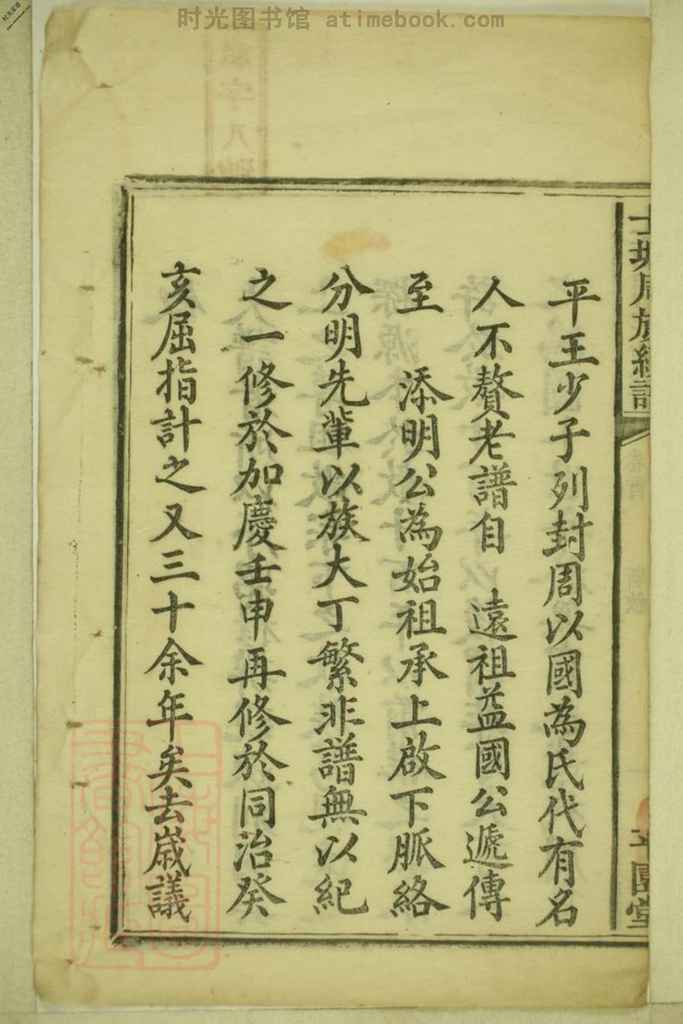 时光图书馆 atimebook.com
平王少子列封周以國為氏代有名
人不贅老譜自 遠祖益國公遞傳
至 添明公為始祖承上啟下脈絡
分明先輩以族大丁繁非譜無以紀
之一修於加慶壬申再修於同治癸
亥屈指計之又三十余年矣去歲議